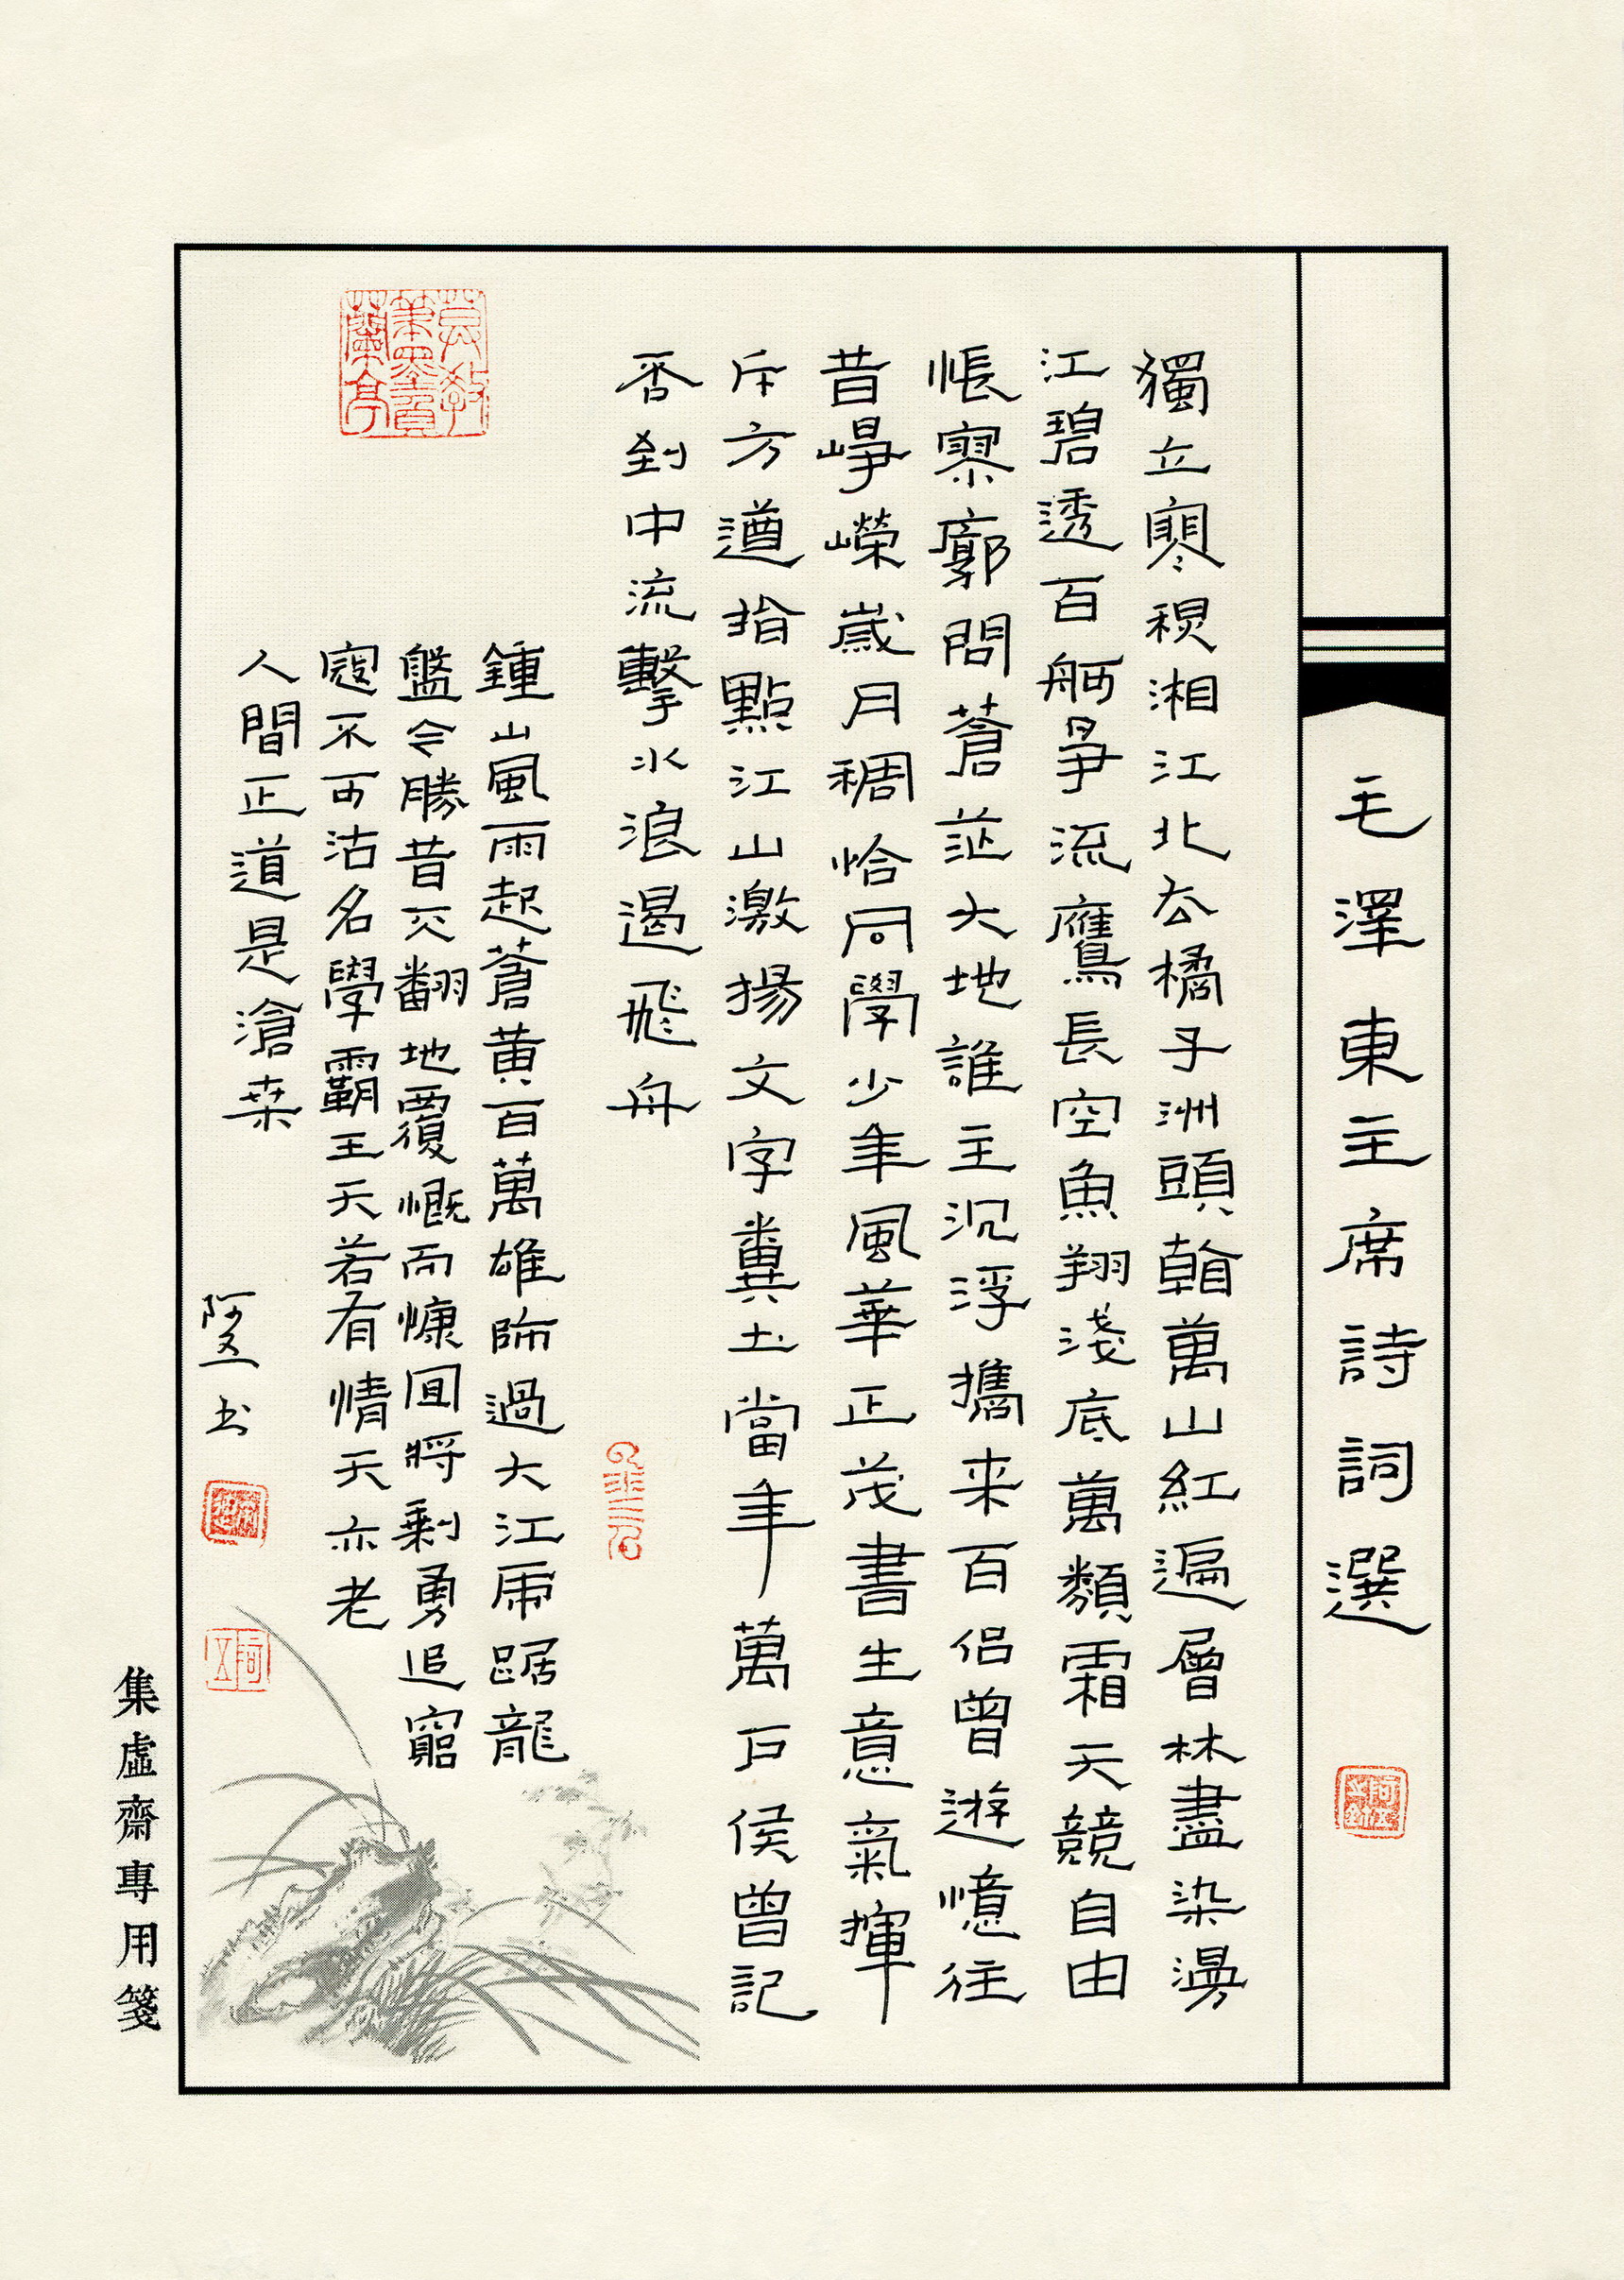 毛澤東主席詩詞選
獨立寒秋湘江北去橘子洲頭看萬山紅遍層林盡染漫
江碧透百舸爭流鷹長空魚翔淺底萬類霜天競自由
悵寥廓問蒼茫大地誰主沉浮攜来百侶曾遊憶往
昔崢嶸歲月稠恰同學少年風華正茂書生意氣揮
斥方遒指點江山激揚文字糞土當年萬戶侯曾記
否到中流擊水浪遏飛舟
鍾山風雨起蒼黃百萬雄師過大江虎踞龍
盤今勝昔天翻地覆慨而慷宜將剩勇追窮
寇不可沽名學霸王天若有情天亦老
人間正道是滄桑
阿五书
莫教筆墨負蘭亭
集虛齋專用箋